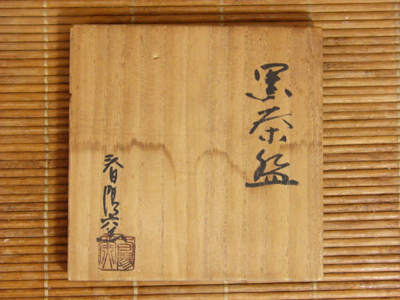 黒茶盌
春陽窯